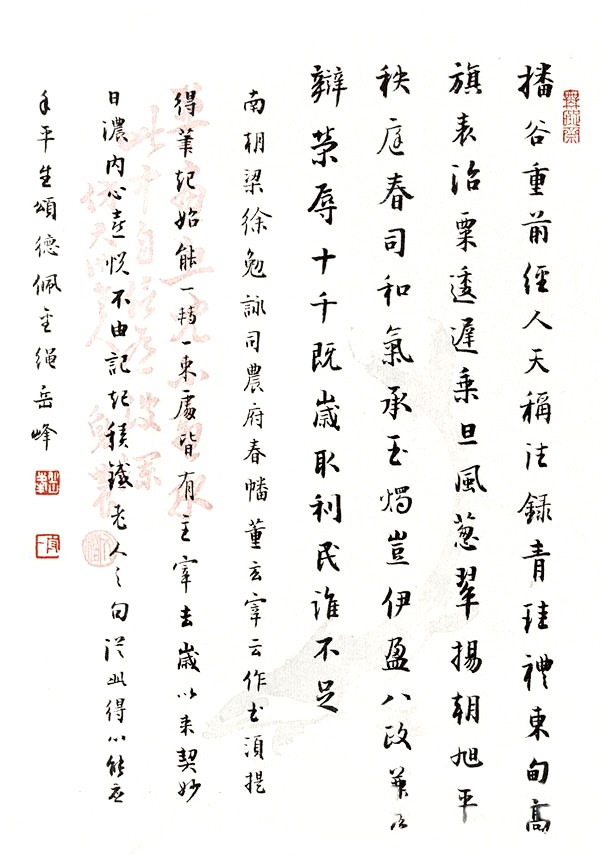 播谷重前經人天稱注録青珪禮東甸高
旗表治粟逶遲乘旦風葱翠揚朝旭平
秩庭春司和氣承玉燭豈伊盈八政兼以
辯榮辱十千既歲取利民誰不足
南朝梁徐勉詠司農府春幡董玄宰云作書須提
得筆起始能一轉一束處皆有主宰去歲以來契妙
日濃内心喜悦不由記起積鐵老人之句從此得心能應
手平生頌德佩重繩岳峰